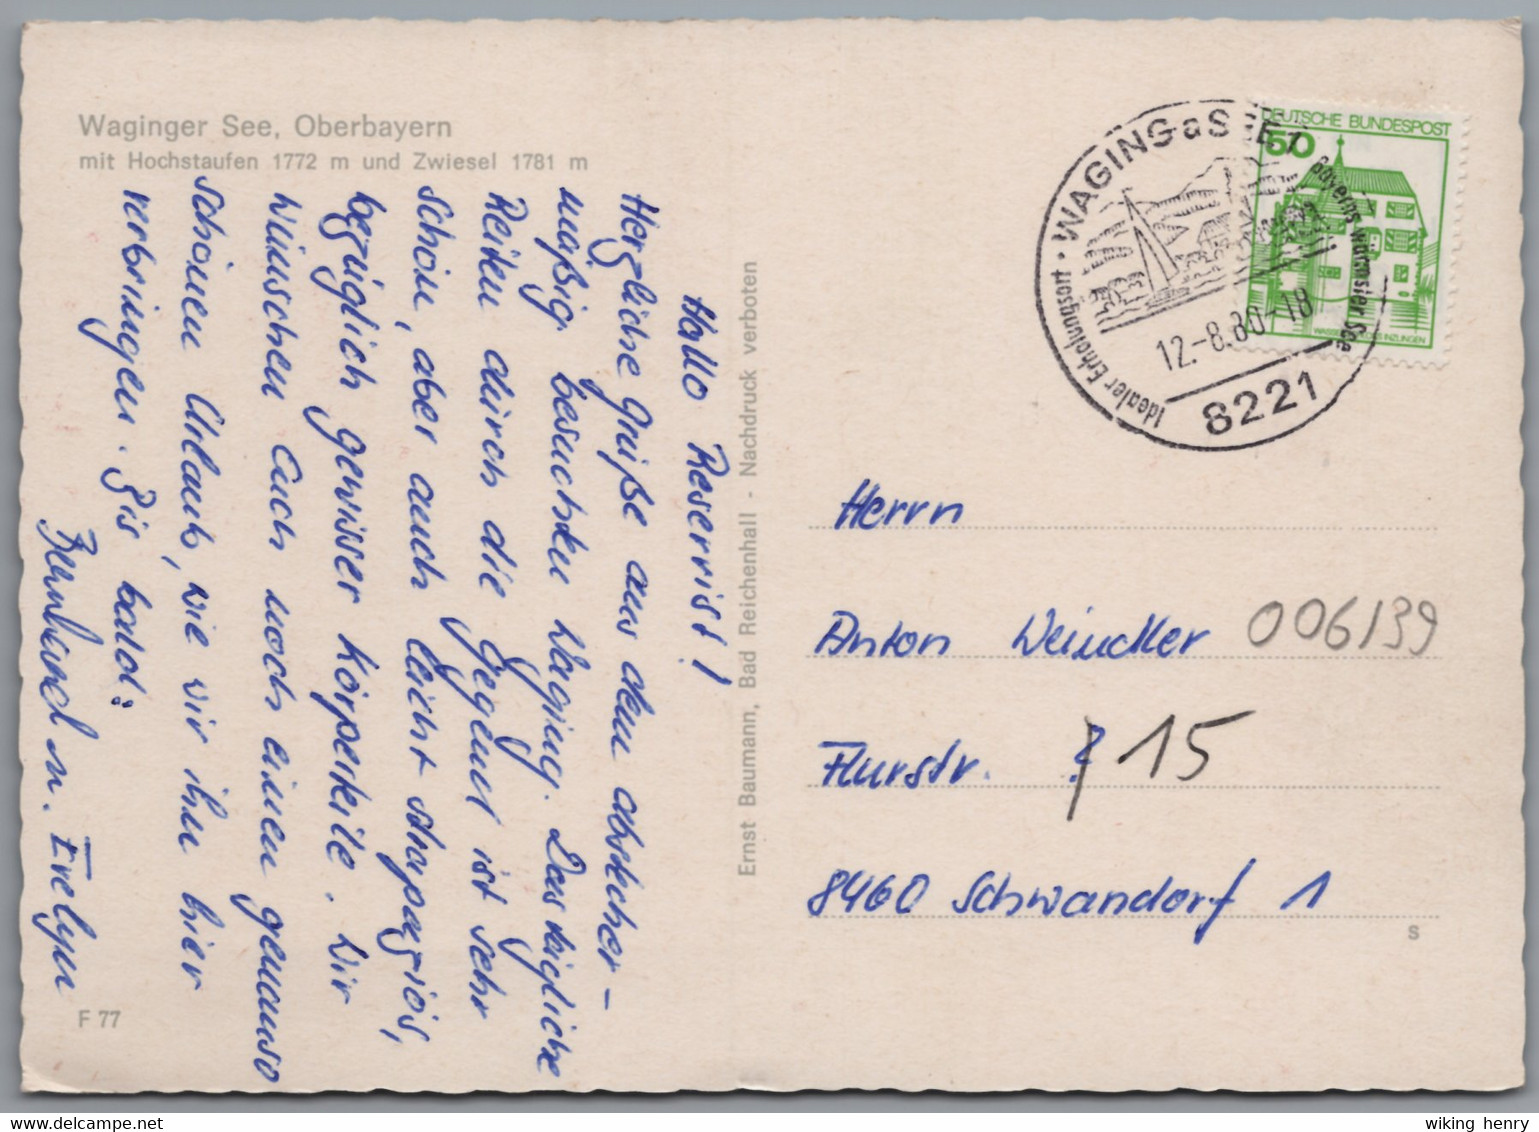 Waginger See, Oberbayern
mit Hochstaufen 1772 m und Zwiesel 1781 m
Hallo Reservist!
Herzliche Grüße aus dem abstecher-
mäßig besuchten Waging. Das tägliche
Reiten durch die Gegend ist sehr
schön, aber auch leicht strapaziös,
bezüglich gewisser Körperteile. Wir
wünschen Euch noch einen genauso
schönen Urlaub, wie wir ihn hier
verbringen. Bis bald:
Bernhard u. Evelyn
F 77
Ernst Baumann, Bad Reichenhall - Nachdruck verboten
WAGING a SEE 1
Bayerns wärmster See
Idealer Erholungsort
12.-8.80-18
8221
DEUTSCHE BUNDESPOST
50
Herrn
Anton Weindler 006139
Flurstr. 15
8460 Schwandorf 1
S
wiking henry